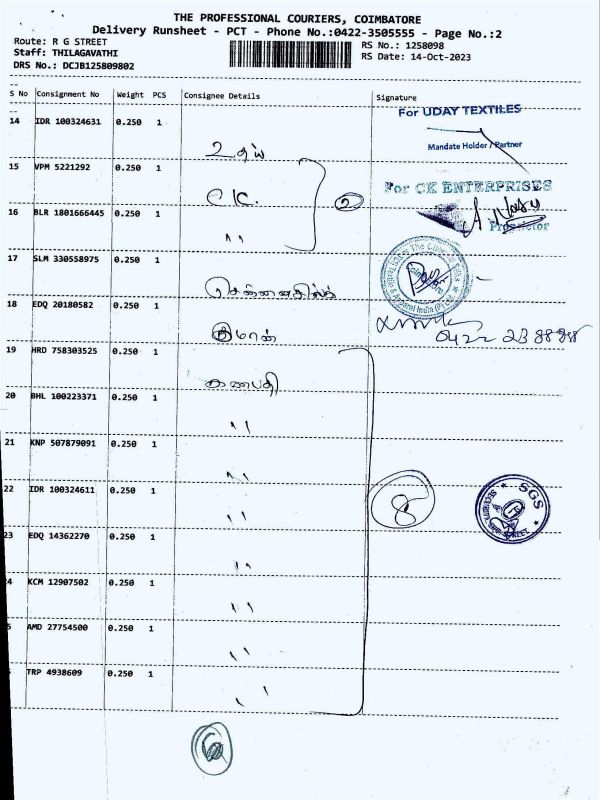 THE PROFESSIONAL COURIERS, COIMBATORE
Delivery Runsheet - PCT - Phone No.:0422-3505555 - Page No.:2
Route: R G STREET
Staff: THILAGAVATHI
DRS No.: DCJB125809802
RS No.: 1258098
RS Date: 14-Oct-2023
S No Consignment No Weight PCS Consignee Details Signature
For UDAY TEXTILES
14 IDR 100324631 0.250 1
உதய்
Mandate Holder / Partner
15 VPM 5221292 0.250 1
C.K. 2
For CK ENTERPRISES
16 BLR 1801666445 0.250 1
"
Proprietor
17 SLM 330558975 0.250 1
சென்னைசில்க்
18 EDQ 20180582 0.250 1
குமரன்
0422 23 88888
19 HRD 758303525 0.250 1
கணபதி
20 BHL 100223371 0.250 1
"
21 KNP 507879091 0.250 1
"
22 IDR 100324611 0.250 1
"
8
SGS
23 EDQ 14362270 0.250 1
"
4 KCM 12907502 0.250 1
"
5 AMD 27754500 0.250 1
"
TRP 4938609 0.250 1
"